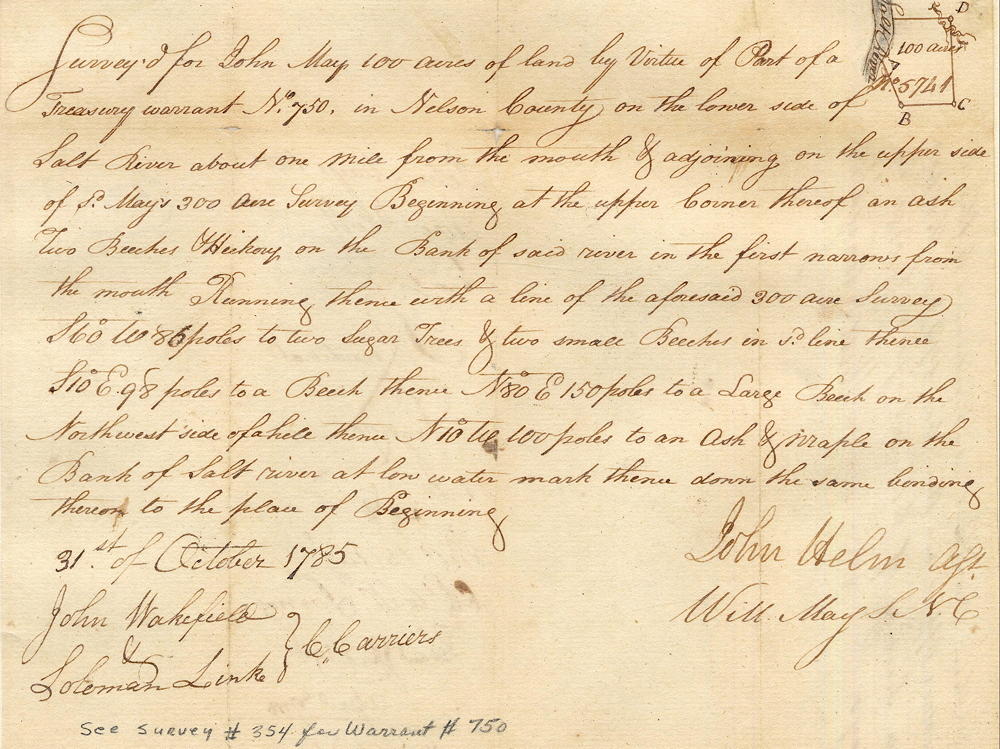 Survey'd for John May 100 acres of land by Virtue of Part of a
Treasury warrant No. 750. in Nelson County on the lower side of
Salt River about one mile from the mouth & adjoining on the upper side
of sd. May's 300 acre Survey Beginning at the upper Corner thereof an ash
two Beeches & Hickory on the Bank of said river in the first narrows from
the mouth Running thence with a line of the aforesaid 300 acre Survey
S60° W 85 poles to two Sugar Trees & two small Beeches in sd. line thence
S10° E. 98 poles to a Beech thence N80° E 150 poles to a Large Beech on the
Northwest side of a hill thence N10° W 100 poles to an Ash & maple on the
Bank of Salt river at low water mark thence down the same binding
thereon to the place of Beginning
31st. of October 1785
John Helm Ast.
Will May S.N.C
John Wakefield
&
Soloman Linke
C. Carriers
See Survey # 354 for Warrant # 750
D
100 acres
A
No. 5741
B
C